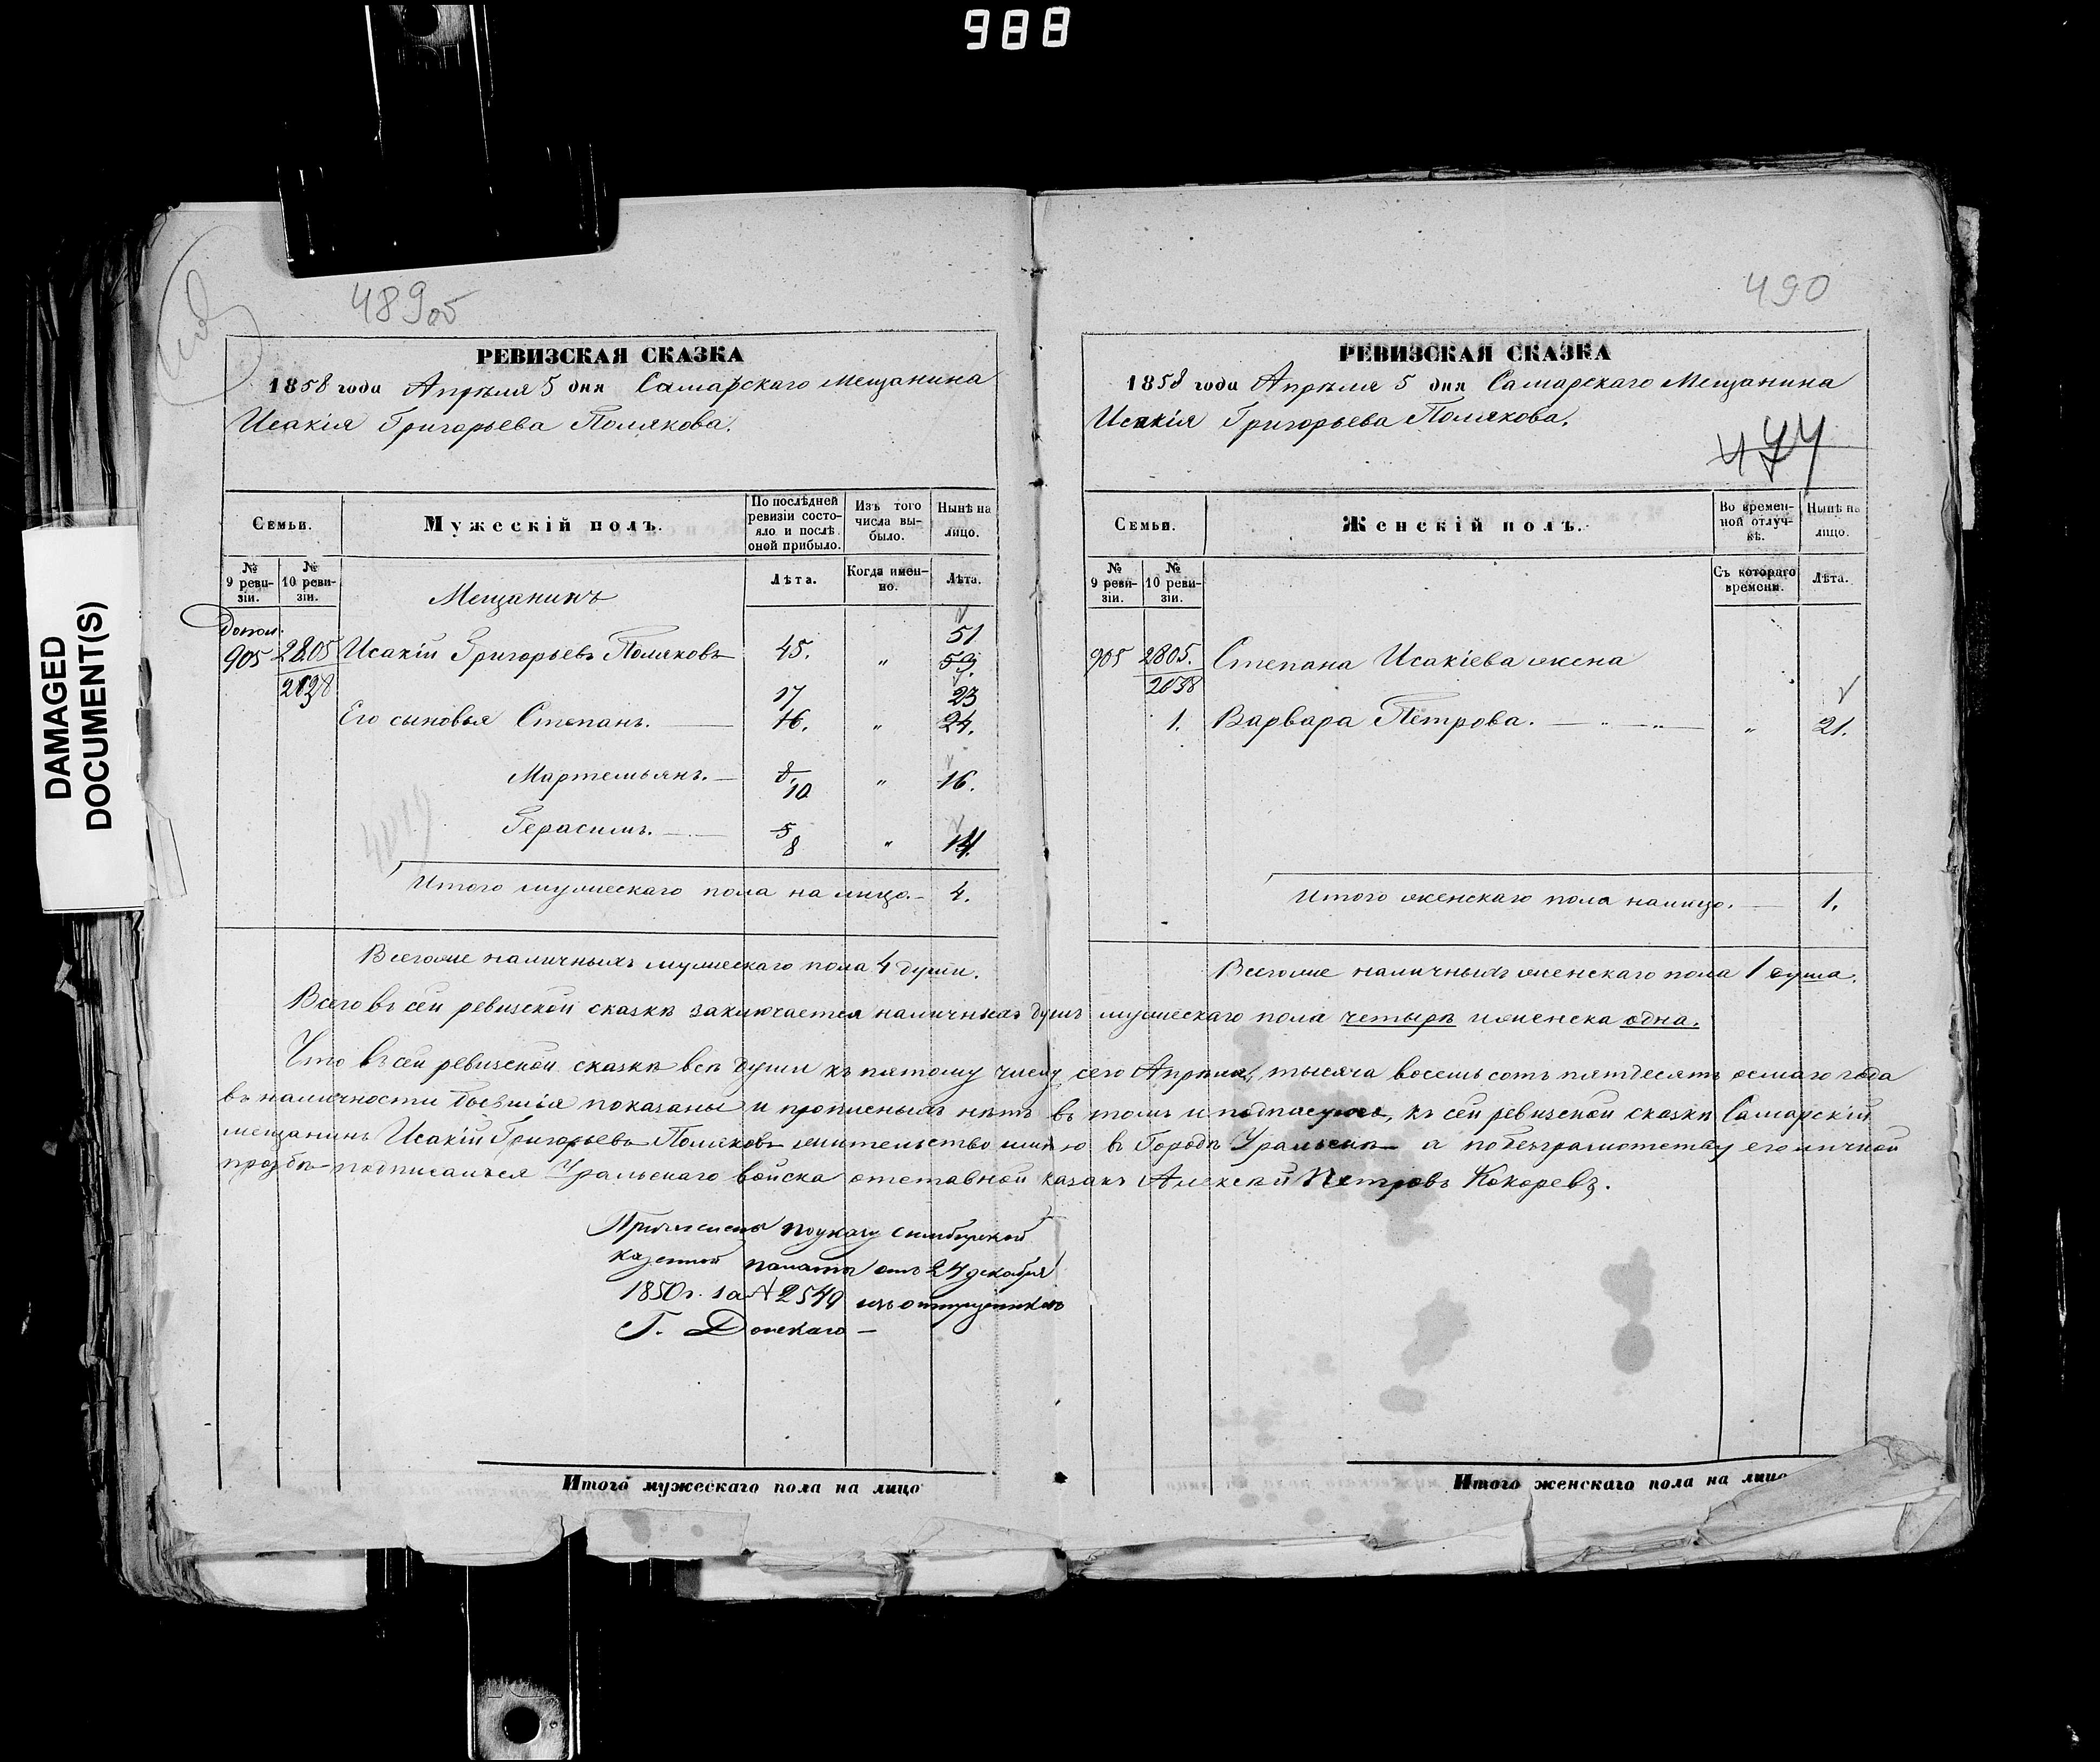 988
DAMAGED
DOCUMENT(S)
489об
РЕВИЗСКАЯ СКАЗКА
1858 года Апрѣля 5 дня Самарскаго Мещанина
Исакія Григорьева Полякова.
Семьи.
Мужескій полъ.
По послѣдней ревизіи состояло и послѣ оной прибыло.
Изъ того числа выбыло.
Нынѣ на лицо.
№ 9 ревизіи.
№ 10 ревизіи.
Лѣта.
Когда именно.
Лѣта.
Мещанинъ
Допол.
905 2805 Исакій Григорьевъ Поляковъ 45. „ 51 59.
2038
Его сыновья Степанъ. 17 16. „ 23 24.
Мартемьянъ. 8 10 „ 16.
Герасимъ. 5 8 „ 14.
Итого мужескаго пола на лицо. 4.
Всегоже наличныхъ мужескаго пола 4 души.
490
РЕВИЗСКАЯ СКАЗКА
1858 года Апрѣля 5 дня Самарскаго Мещанина
Исакія Григорьева Полякова.
Семьи.
Женскій полъ.
Во временной отлучкѣ.
Нынѣ на лицо.
№ 9 ревизіи.
№ 10 ревизіи.
Съ котораго времени.
Лѣта.
905 2805. Степана Исакіева жена
2038
1. Варвара Петрова. „ 21.
Итого женскаго пола налицо. 1.
Всегоже наличныхъ женскаго пола 1 душа.
Всего въ сей ревизской сказкѣ заключается наличныхъ душъ мужескаго пола четыре и женска одна.
Что въ сей ревизской сказкѣ всѣ души къ пятому числу сего Апрѣля, тысяча восемь сотъ пятдесятъ осмаго года
въ наличности бывшія показаны и прописныхъ нѣтъ въ томъ и подписуюсь, къ сей ревизской сказкѣ Самарскій
мещанинъ Исакій Григорьевъ Поляковъ жительство имѣю въ Городѣ Уральскѣ а по безграмотству его личной
прозбѣ подписался Уральскаго войска отставной казакъ Алексѣй Петровъ Кокоревъ.
Причислены по указу Симбирской
казенной палаты отъ 24 декабря
1850 г. за № 2549 изъ отпущенниковъ
Г. Донскаго
Итого мужескаго пола на лицо
Итого женскаго пола на лицо